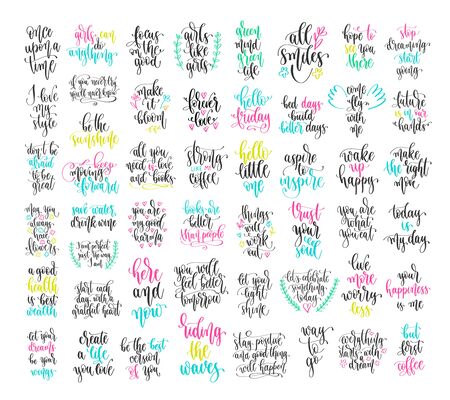 once
upon a
time
girls can
do
anything
focus
on the
good
girls
like
girls
green
mind
green
life
all
smiles
hope
to see
you
there
stop
dreaming
start
going
I love
my
style
if you never try
you'll never know
be the
sunshine
make
it
bloom
forever
love
hello
friday
bad days
build
better days
come
fly
with
me
future
is in our
hands
don't be
afraid
to be
great
keep
moving
forward
all you
need is
love
and books
strong
coffee
hello
little
one
aspire
to
inspire
wake
up
happy
make
the right
move
may you
always
have
flowers
save water
drink wine
I am perfect
just the way
I am
you are
my good
karma
books are
better
than people
things
will
work
out
trust
your
soul
you are
what
you eat
today
is
my day
a good
health
is best
wealth
start each
day with a
grateful heart
here
and
now
you will
feel better
tomorrow
let your
light
shine
let's celebrate
something
today
live
more
worry
less
your
happiness
is me
let your
dreams
be your
wings
create
a life
you love
be the best
version of
you
riding
the
waves
stay positive
and good things
will happen
way
to
go
everything
starts with
a dream
but
first
coffee